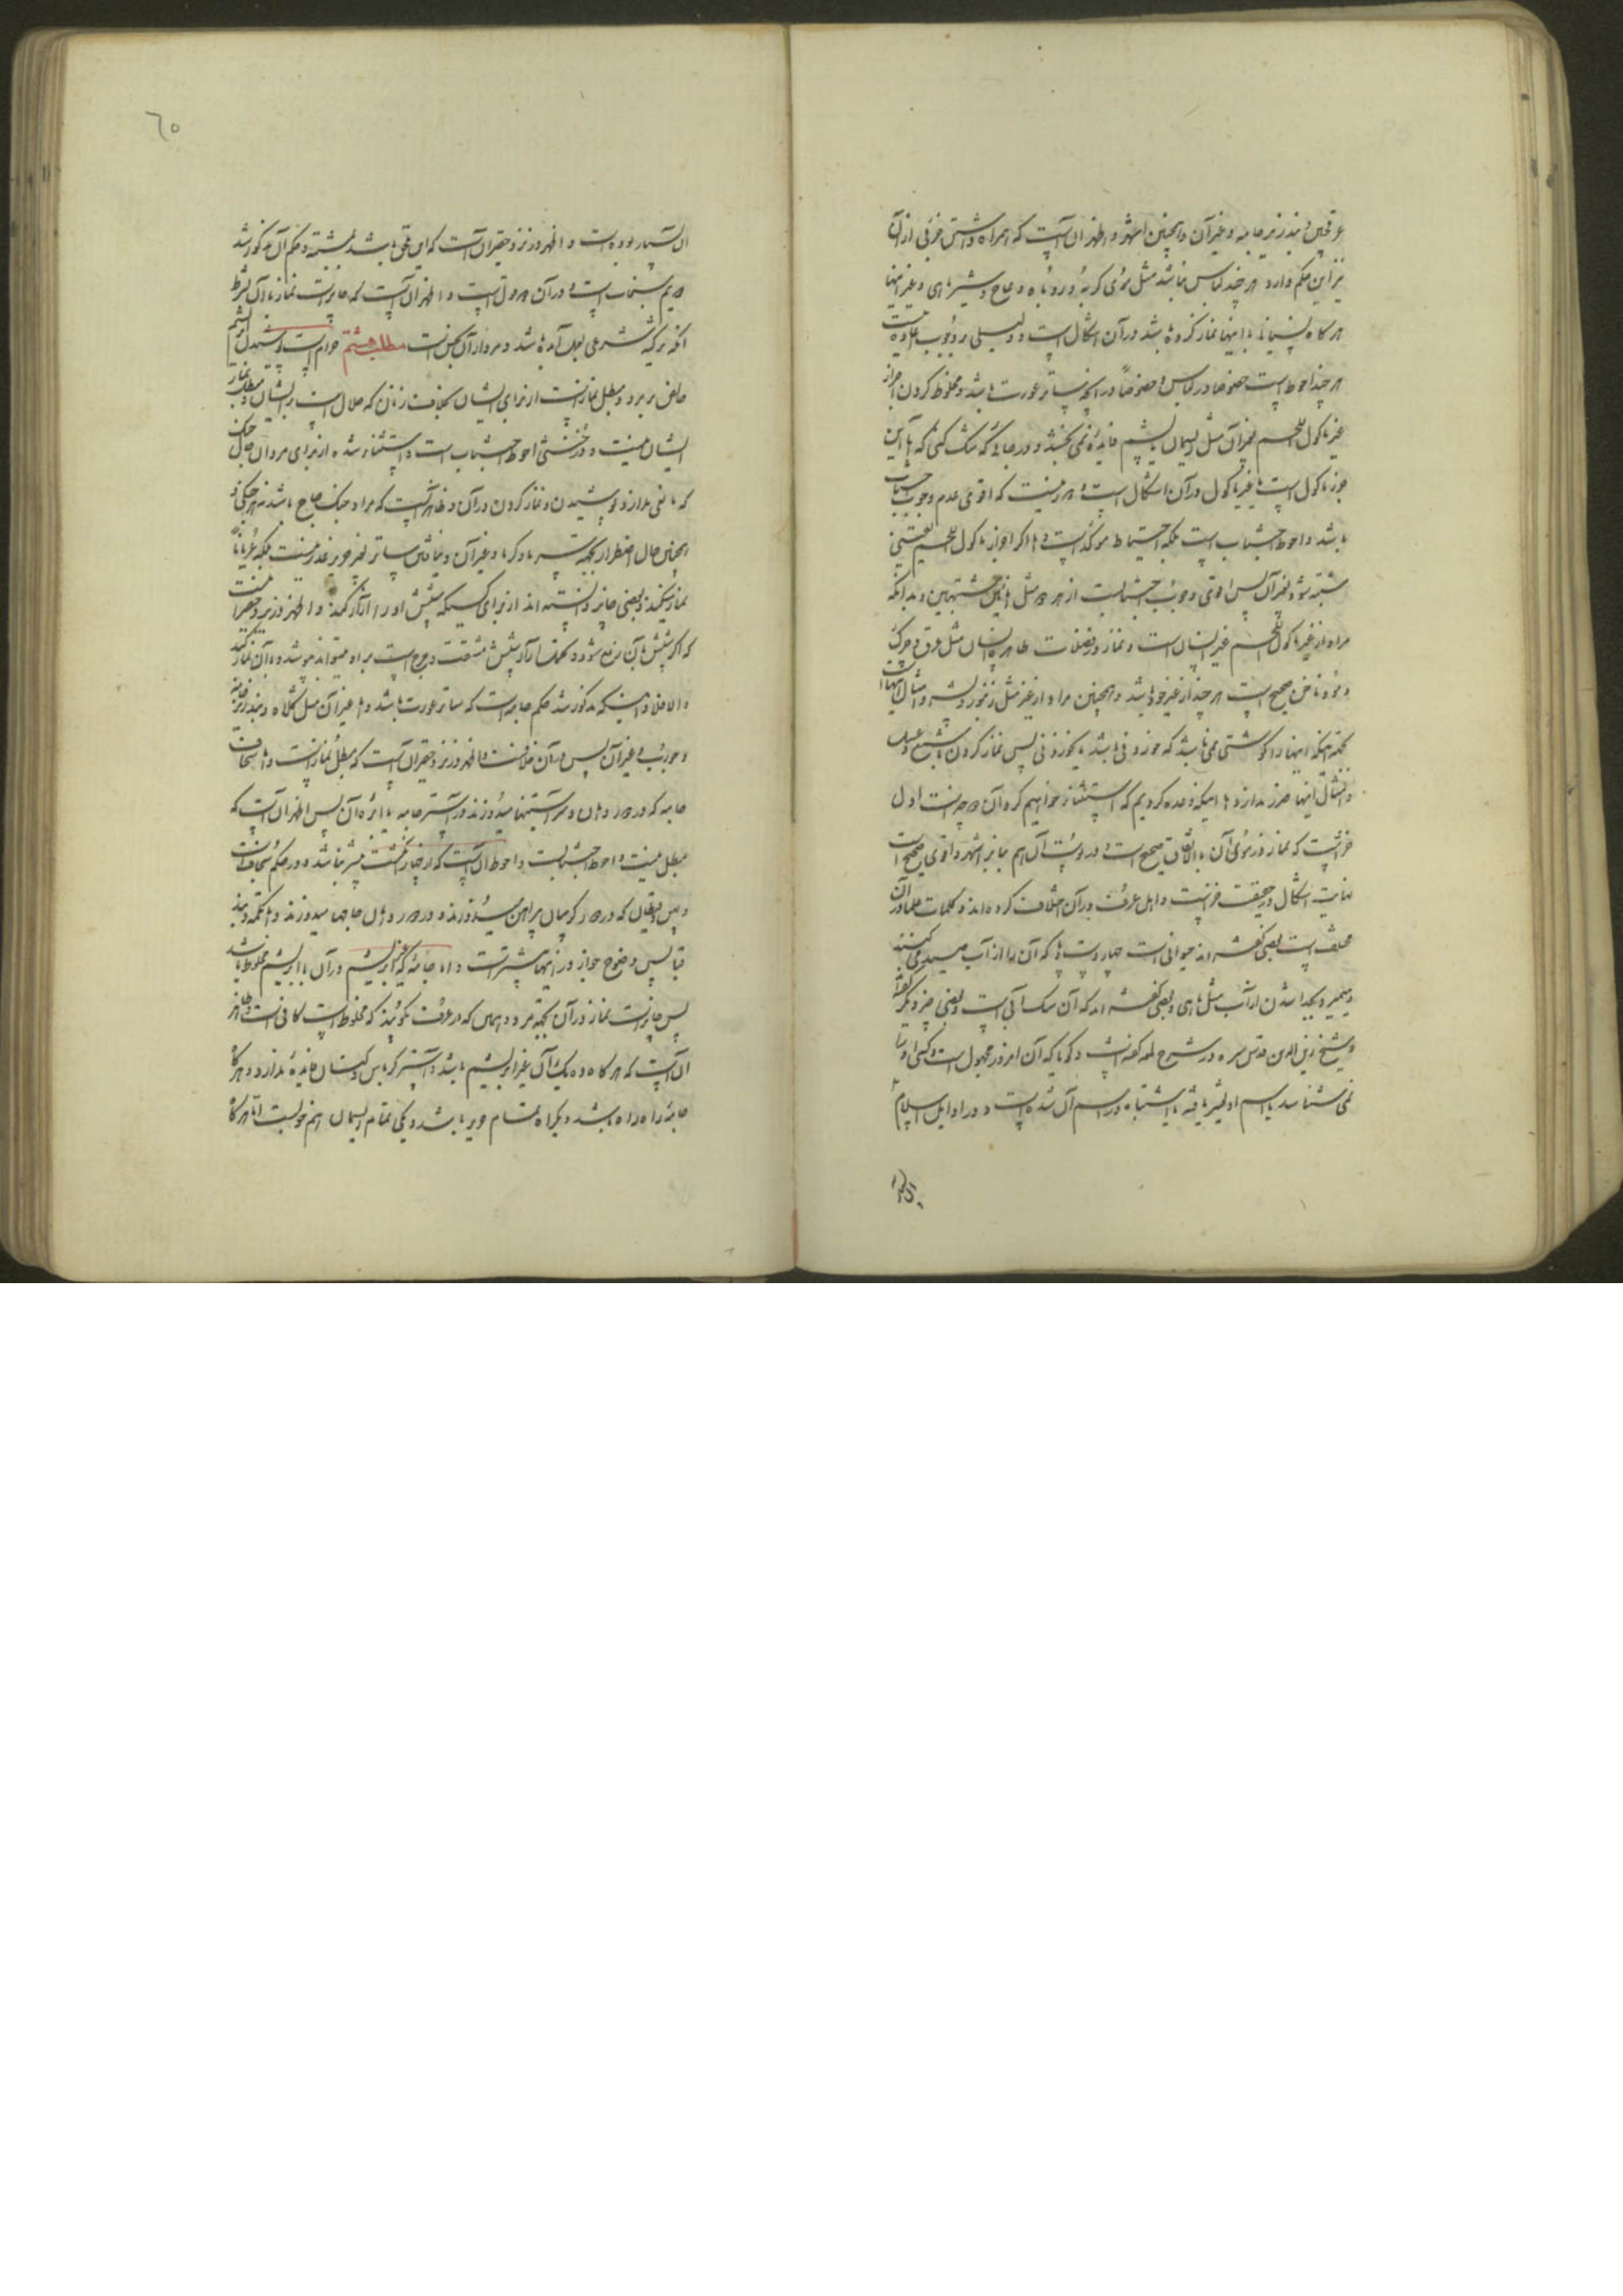 عرقچین و بند زیر جامه و غیر آن و همچنین اشهر و اظهر آن است که همراه داشتن جزئی از آن
نیز این حکم دارد هر چند لباس نباشد مثل موی گربه و روباه و عاج و شیر ماهی و غیر اینها
هر گاه با اینها نماز کرده باشد در آن اشکال است و دلیلی بر وجوب اعاده نیست
هر چند احوط است خصوصا در لباس و خصوصاً در آنچه ساتر عورت باشد و مخلوط کردن اجزاء
غیر ماکول اللحم بغیر آن مثل ریسمان یا پشم فایده نمی بخشد و در جائی که شک کنی که آیا این
جزء ماکول است یا غیر ماکول در آن اشکال است و دور نیست که اقوی عدم وجوب اجتناب
باشد و احوط اجتناب است بلکه احتیاط مؤکد است و اما اگر اجزاء ماکول اللحم یقینی
مشتبه شود بغیر آن پس اقوی وجوب اجتناب است از هر دو مثل انائین مشتبهین و بدانکه
مراد از غیر ماکول اللحم غیر انسان است و نماز در فضلات طاهره انسان مثل عرق و چرک
و مو و ناخن صحیح است هر چند از غیر خود باشد و همچنین مراد از غیر مثل زنبور و پشه و امثال اینها است
بجهة اینکه اینها را گوشتی نمی باشد که خوردنی باشد یا نخوردنی پس نماز کردن با شمع و عسل
و امثال اینها ضرر ندارد و اما اینکه وعده کردیم که استثناء خواهیم کرد آن دو چیز است اول
خز است که نماز در موی آن بالاتفاق صحیح است و در پوست آن هم بنا بر اشهر و اقوی صحیح است
نهایت اشکال در حقیقت خز است و اهل عرف در آن اختلاف کرده اند و کلمات علما در آن
مختلف است بعضی گفته اند حیوانی است چهار دست و پا که آن را از آب صید می کنند
و میمیرد بجدا شدن از آب مثل ماهی و بعضی گفته اند که آن سگ آبی است و بعضی چیز دیگر گفته
و شیخ زین الدین قدس سره در شرح لمعه گفته است و گویا که آن امروز مجهول است و کسی او را
نمی شناسد یا اسم او تغییر یافته یا اشتباه در اسم آن شده است و در اوایل اسلام
٦٥
آن بسیار بوده است و اظهر در نزد حقیر آن است که این ملحق باشد بمشتبه و حکم آن مذکور شد
دویم سنجاب است و در آن دو قول است و اظهر آن است که جایز است نماز با آن بشرط
آنکه تزکیه شرعی بعمل آمده باشد و مردار آن نجس است مطلب هشتم حرام است پوشیدن ابریشم
خالص بر مرد و مبطل نماز است از برای ایشان بخلاف زنان که حلال است بر ایشان و مبطل نماز
ایشان نیست و در خنثی احوط اجتناب است و استثناء شده از برای مردان حال جنگ
که مانعی ندارد پوشیدن و نماز کردن در آن و ظاهر آنست که مراد جنگ مباح باشد نه هر جنگی و
همچنین حال اضطرار بجهة سرما و گرما و غیر آن و نیافتن ساتر بغیر حریر عذر نیست بلکه عریاناً
نماز میکند و بعضی جایز دانسته اند از برای کسیکه شپش او را آزار کند و اظهر در نزد حقیر آن است
که اگر شپش بآن رفع شود و تحمل آزار شپش مشقت و حرج است بر او میتواند پوشد و با آن نماز کند
و الا فلا و اینکه مذکور شد حکم جامه است که ساتر عورت باشد و اما غیر آن مثل کلاه و بند زیر جامه
و جورب و غیر آن پس در آن خلافست و اظهر در نزد حقیر آن است که مبطل نماز نیست و اما سجاف
جامه که در دور دامان و سر آستینها میدوزند و آستر جامه یا ابره آن پس اظهر آن است که
مبطل نیست و احوط اجتنابست و احوط آن است که از چهار انگشت بیشتر نباشد و در حکم سجاف است
که در دور گریبان پیراهن میدوزند و در دور دامان جامها میدوزند و اما تکمه و بند
قبا پس وضوح جواز در اینها بیشتر است و اما جامه که غیر ابریشم در آن با ابریشم مخلوط باشد
پس جایز است نماز در آن بجهة مرد و همین که در عرف بگویند که مخلوط است کافی است و ظاهر
آن است که هر گاه ده یک آن غیر ابریشم باشد و آستر کرباس و کتان فایده ندارد و هر گاه
جامه راه راه باشد و یکراه تمام حریر باشد و یکی تمام ریسمان هم خوبست اما هر گاه